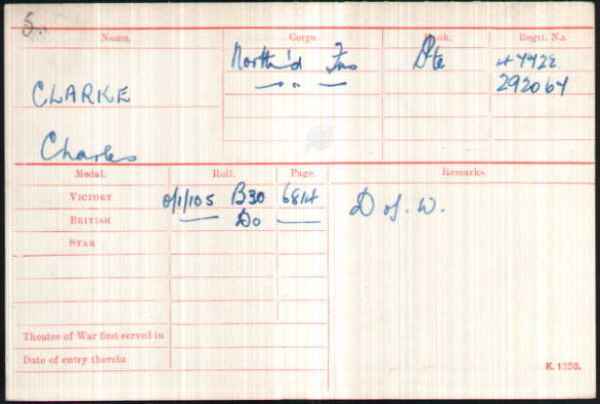 5.
Name. Corps. Rank. Regtl. No.
North'd Fus Pte 47922
CLARKE — " — 292064
Charles
Medal. Roll. Page. Remarks.
VICTORY O/1/105 B30 6814 D of. W.
BRITISH — Do —
STAR
Theatre of War first served in
Date of entry therein
K. 1380.